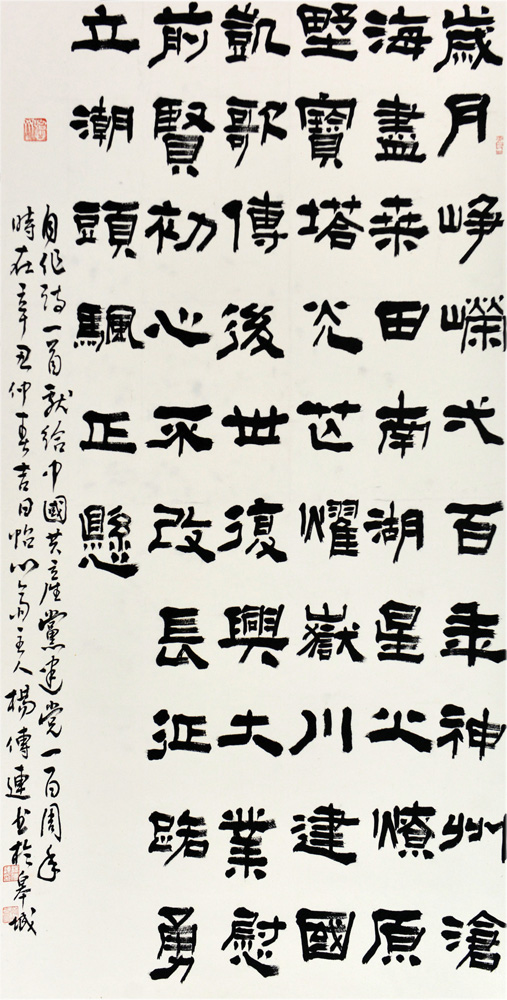 歲月崢嶸弌百年神州滄
海盡桒田南湖星火燎原
墅寶塔光芒耀嶽川建國
凱歌傳後世復興大業慰
前賢初心不改長征路勇
立潮頭颿正懸
自作詩一首獻給中國共產黨建党一百周年
時在辛丑仲春吉日怡心齋主人楊傳連書於皋城